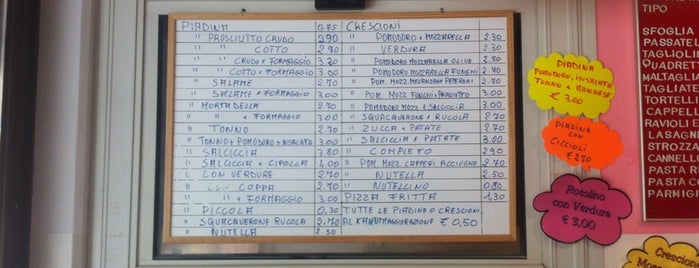 PIADINA 0.75
" PROSCIUTTO CRUDO 2.90
" " COTTO 2.70
" " CRUDO + FORMAGGIO 3.20
" " COTTO + FORMAGGIO 3.00
" SALAME 2.70
" SALAME + FORMAGGIO 3.00
" MORTADELLA 2.70
" " + FORMAGGIO 3.00
" TONNO 2.70
" TONNO + POMODORO + INSALATA 3.00
" SALCICCIA 3.80
" SALCICCIA + CIPOLLA 4.00
" CON VERDURE 2.70
" CON COPPA 2.70
" " + FORMAGGIO 3.00
" PICCOLA 0.30
" SQUACQUERONE RUCOLA 2.70
" NUTELLA 2.50
CRESCIONI
" POMODORO + MOZZARELLA 2.30
" VERDURA 2.30
" POMODORO MOZZARELLA OLIVE 2.50
" POMODORO MOZZARELLA FUNGHI 2.70
" POM. MOZZ MELANZANE PEPERONI 2.70
" POM. MOZZ FUNGHI + PROSCIUTTO 3.00
" POMODORO MOZZ + SALCICCIA 3.00
" SQUACQUERONE + RUCOLA 2.70
" ZUCCA + PATATE 2.50
" SALCICCIA + PATATE 3.00
" COMPLETO 2.90
" POM. MOZZ CAPPERI ACCIUGHE 2.70
" NUTELLA 2.50
" NUTELLINO 0.80
PIZZA FRITTA 1.30
TUTTE LE PIADINE O CRESCIONI
AL KAMUT MAGGIORAZIONE € 0,50
PIADINA
POMODORO, INSALATA
TONNO + MAIONESE
€ 3.00
PIADINA
CON
CICCIOLI
€ 2.70
Rotolino
con Verdura
€ 3,00
Crescione
TIPO
SFOGLIA
PASSATEL
TAGLIOLIN
QUADRETT
MALTAGLI
TAGLIATE
TORTELLI
CAPPELL
RAVIOLI E
LASAGN
STROZZA
CANNELLO
PASTA R
PASTA CO
PARMIGI